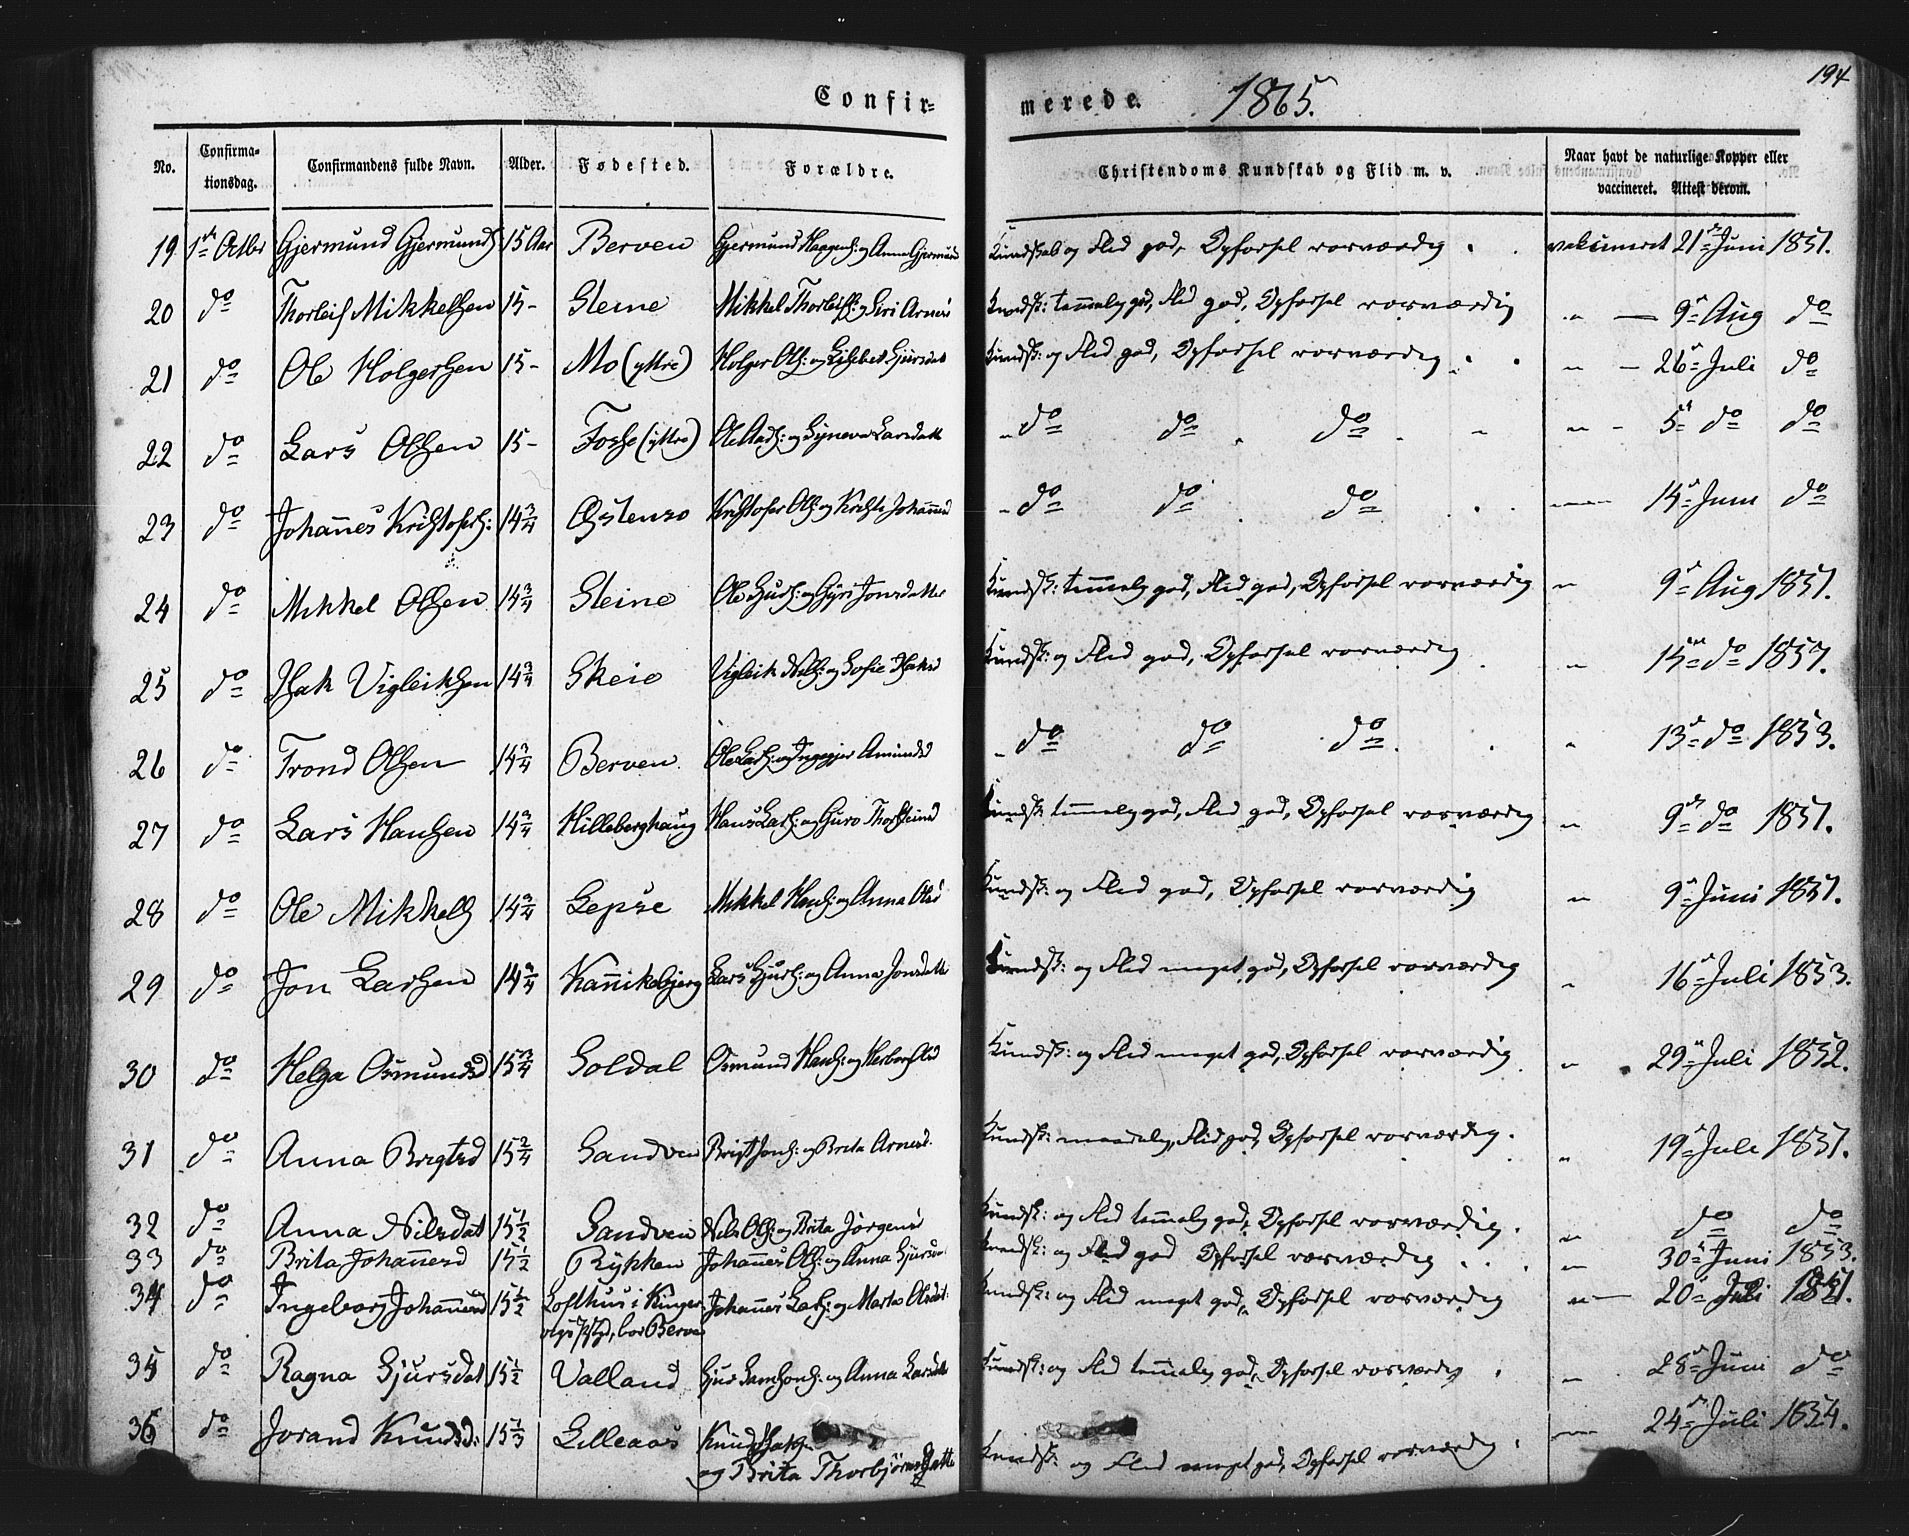 Confirmerede. 1865. 194
No. Confirmationsdag. Confirmandens fulde Navn. Alder. Fødested. Forældre. Christendoms Kundskab og Flid m. v. Naar havt de naturlige Kopper eller vaccineret. Attest derom.
19 1ste Octbr Gjermund Gjermunds 15 Aar Berven Gjermund Haagens: og Anna Gjermunds Kundskab og Flid god, Opførsel rosværdig vaksineret 21de Juni 1851.
20 do Thorleif Mikkelsen 15- Steine Mikkel Thorleifs: og Siri Arnes Kundsk: temmelig god, Flid god, Opførsel rosværdig " — 9de Aug do
21 do Ole Holgersen 15- Mo (yttre) Holger Ols: og Lisbet Sjursdat Kundsk: og Flid god, Opførsel rosværdig " — 26de Juli do
22 do Lars Olsen 15- Fosse (yttre) Ole Aads: og Synneva Larsdatt do do do " - 5te do do
23 do Johannes Kristofers: 14 3/4 Øystenso Kristofer Ols: og Kristi Johannesd do do do 14de Juni do
24 do Mikkel Olsen 14 3/4 Steine Ole Sjurs: og Gyri Jonsdatter Kundsk: temmelig god, Flid god, Opførsel rosværdig " 9de Aug 1851.
25 do Isak Vigleiksen 14 3/4 Skeie Vigleik Nils: og Sofie Isaksd Kundsk: og Flid god, Opførsel rosværdig " 15de do 1857.
26 do Trond Olsen 14 3/4 Berven Ole Lars: og Ingegjer Amundsd do do do " 13de do 1853.
27 do Lars Hansen 14 3/4 Hilleberghaug Hans Lars: og Guro Thorsteinsd Kundsk: temmelig god, Flid god, Opførsel rosværdig " 9de do 1851.
28 do Ole Mikkels 14 3/4 Lepsø Mikkel Hans: og Anna Olsd Kundsk: og Flid god, Opførsel rosværdig " 9de Juni 1851.
29 do Jon Larsen 14 3/4 Kannikebjerg Lars Sjurs: og Anna Jonsdatt Kundsk: og Flid meget god, Opførsel rosværdig " 16de Juli 1853.
30 do Helga Osmundsd 15 3/4 Soldal Osmund Hans: og Kundsk: og Flid meget god, Opførsel rosværdig " 29de Juli 1852.
31 do Anna Brigtsd 15 2/4 Sandven Brigt Jons: og Brita Arnesd. Kundsk: maadelig, Flid god, Opførsel rosværdig. " 19de Juli 1851.
32 do Anna Nilsdat 15 1/2 Sandven Nils Ols: og Brita Jørgens Kundsk: og Flid temmelig god, Opførsel rosværdig. " do do
33 do Brita Johannesd 15 1/2 Rykken Johannes Ols: og Anna Sjursd Kundsk: og Flid god Opførsel rosværdig " 30te Juni 1853.
34 do Ingeborg Johannesd 15 1/2 Lofthus i Kinser- Johannes Lars: og Marta Olsdat: Kundsk: og Flid meget god, Opførsel rosværdig " 20de Juli 1851.
viges Pstgd, bor Berven
35 do Ragna Sjursdat 15 1/2 Valland Sjur Samsons: og Anna Larsdatt Kundsk: og Flid temmelig god, Opførsel rosværdig " 28de Juni do
36 do Jorand Knudsd: 15 1/3 Lilleaas Knud 24de Juli 1854.
og Brita Thorbjørnsdatt Kundsk: og Flid meget god, Opførsel rosværdig